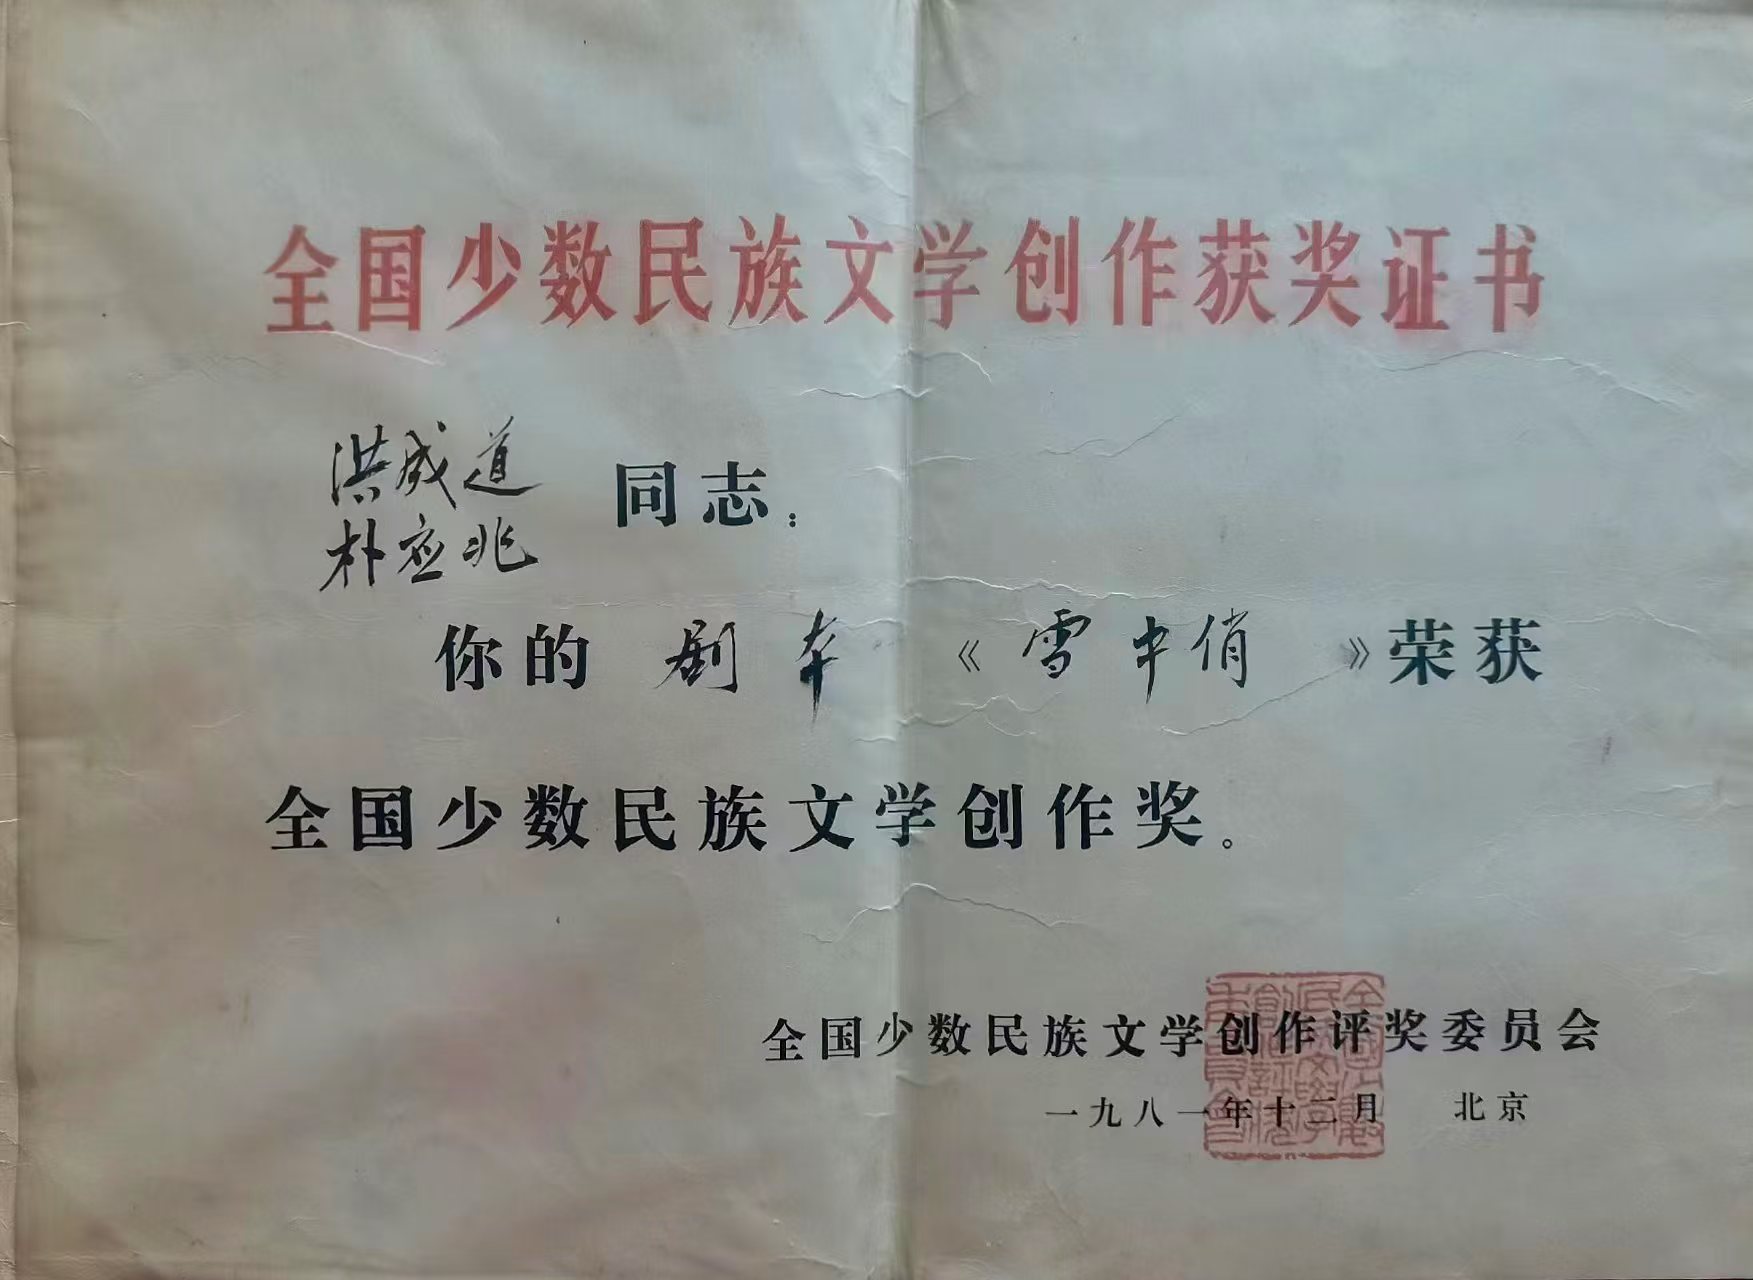 全国少数民族文学创作获奖证书
洪成道
朴应兆
同志：
你的 剧本 《雪中俏》荣获
全国少数民族文学创作奖。
全国少数民族文学创作评奖委员会
一九八一年十二月 北京